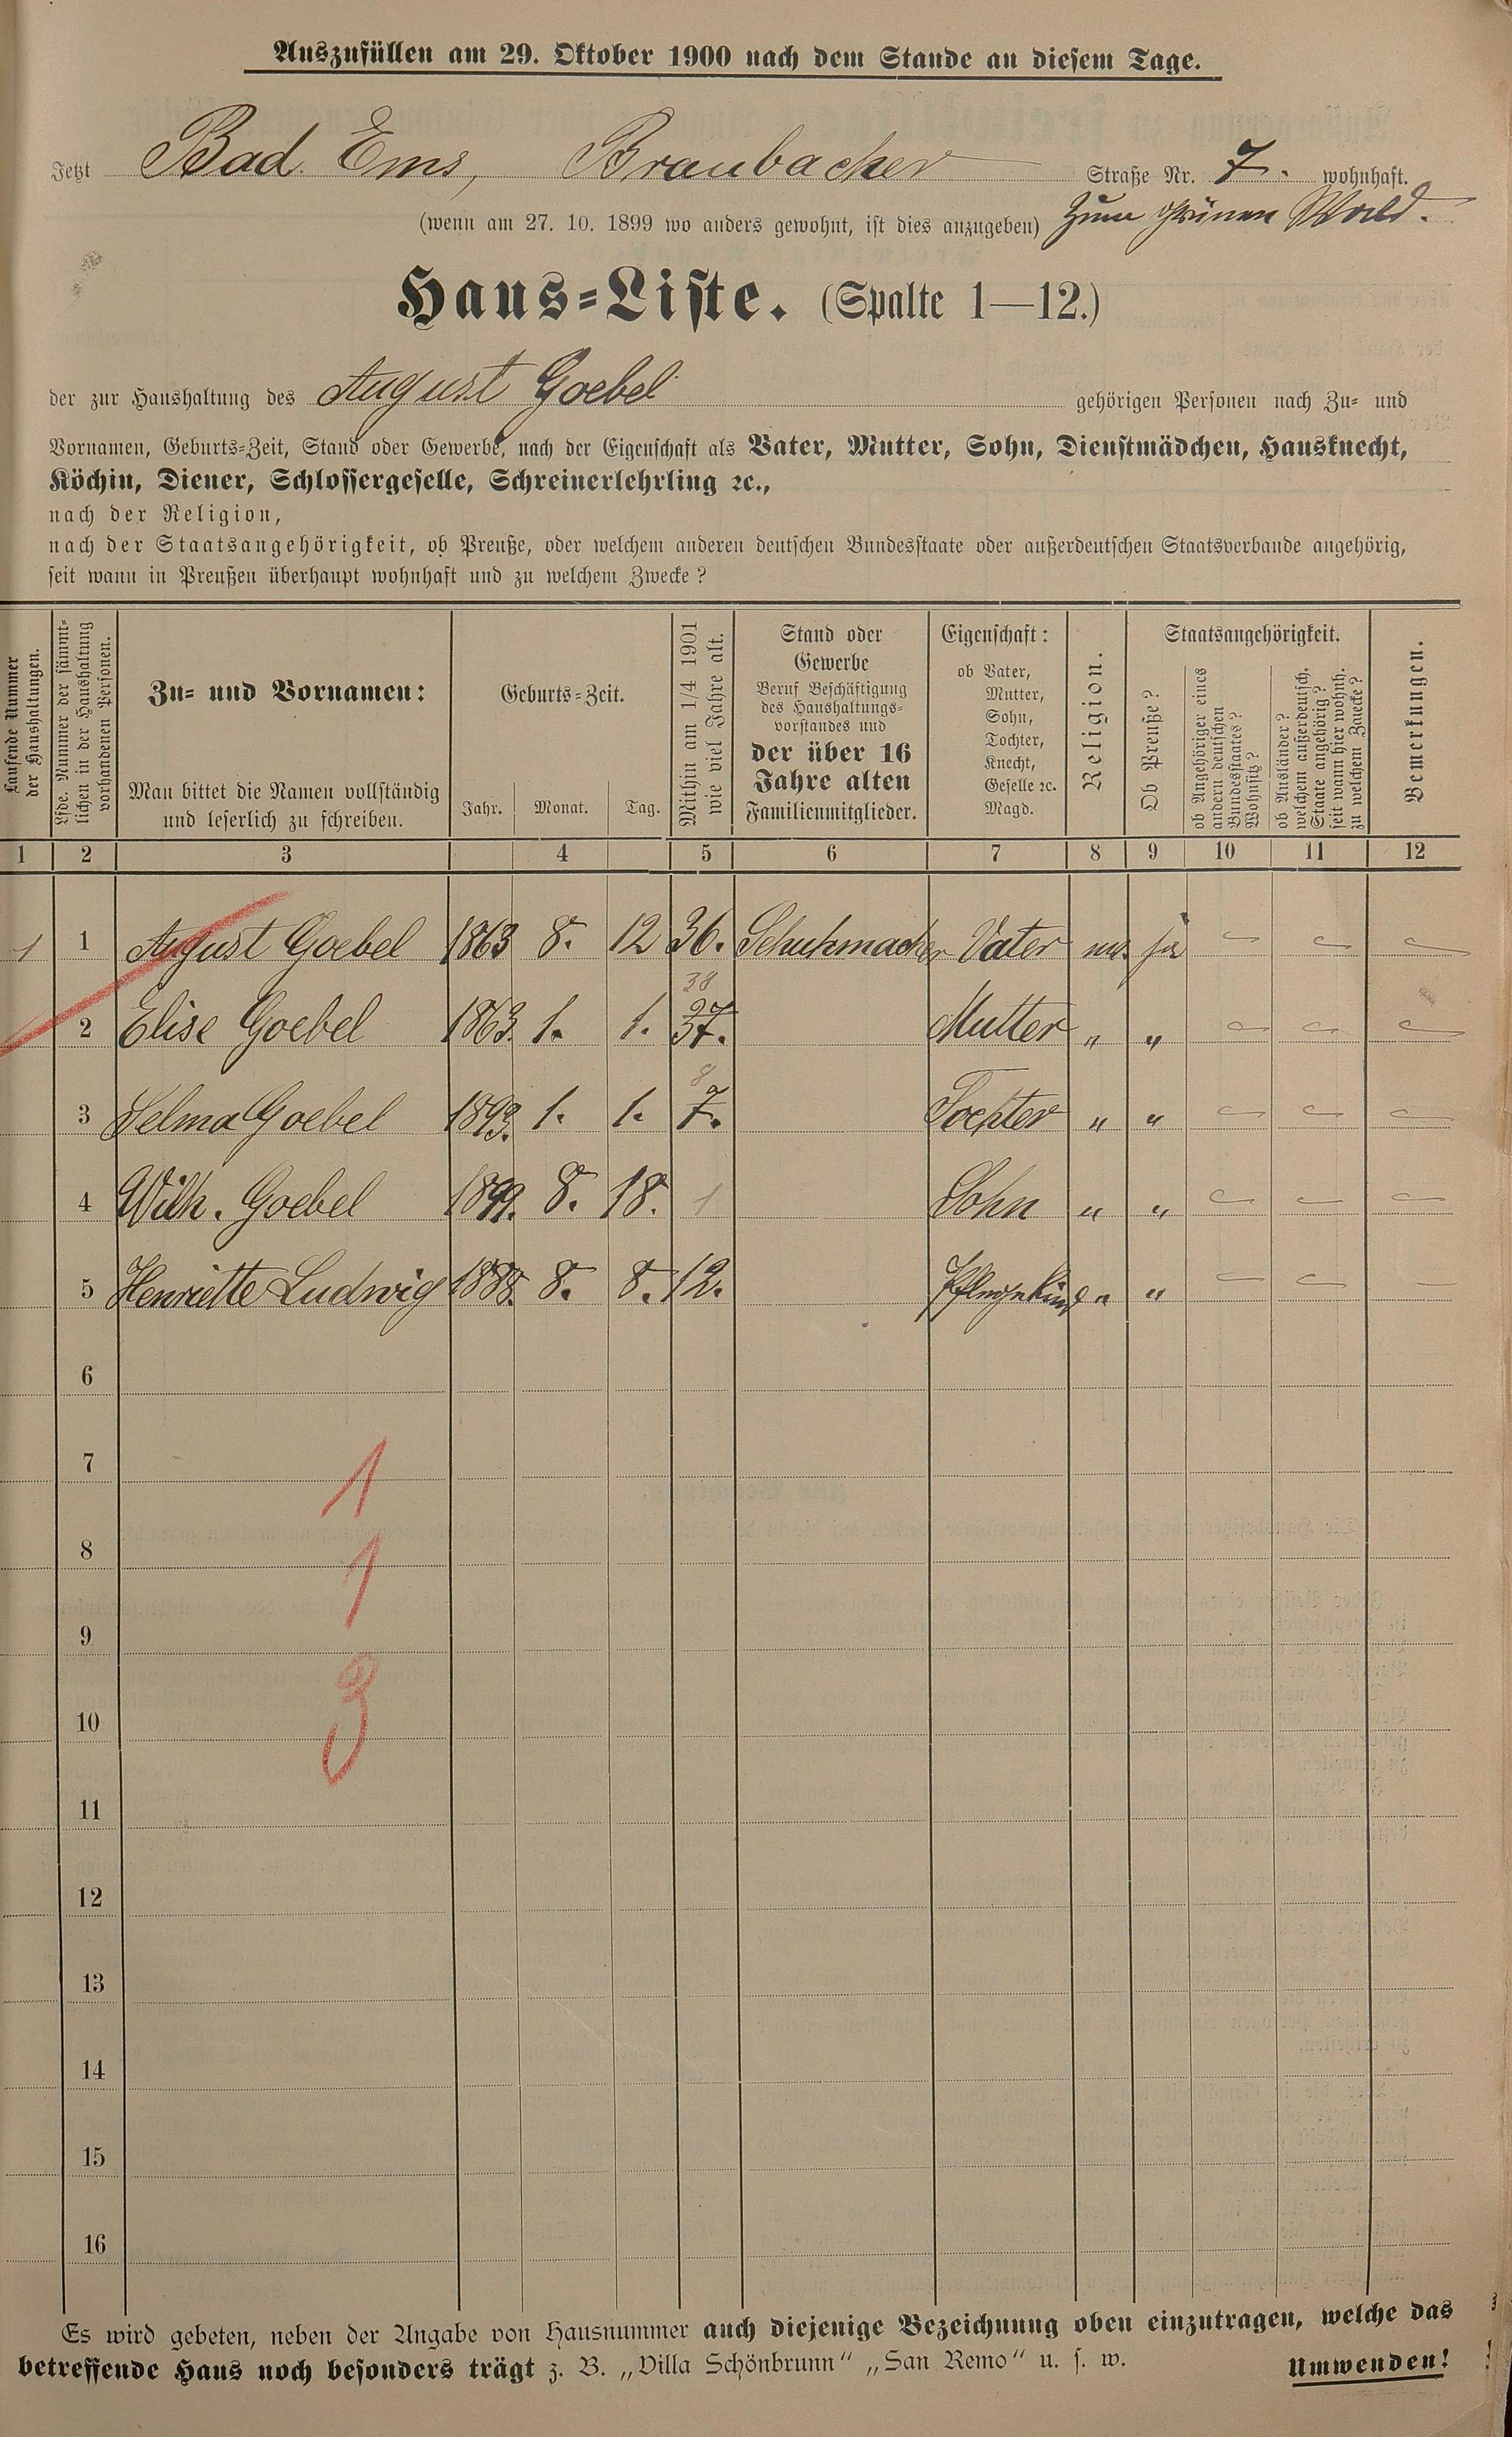 Auszufüllen am 29. Oktober 1900 nach dem Stande an diesem Tage.
Jetzt Bad Ems, Braubacher Straße Nr. 7. wohnhaft.
(wenn am 27. 10. 1899 wo anders gewohnt, ist dies anzugeben) Zum grünen Wald.
Haus-Liste. (Spalte 1—12.)
der zur Haushaltung des August Goebel gehörigen Personen nach Zu- und
Vornamen, Geburts-Zeit, Stand oder Gewerbe, nach der Eigenschaft als Vater, Mutter, Sohn, Dienstmädchen, Hausknecht,
Köchin, Diener, Schlossergeselle, Schreinerlehrling ꝛc.,
nach der Religion,
nach der Staatsangehörigkeit, ob Preuße, oder welchem anderen deutschen Bundesstaate oder außerdeutschen Staatsverbande angehörig,
seit wann in Preußen überhaupt wohnhaft und zu welchem Zwecke?
Laufende Nummer
der Haushaltungen.
Lfde. Nummer der sämmt-
lichen in der Haushaltung
vorhandenen Personen.
Zu- und Vornamen:
Man bittet die Namen vollständig
und leserlich zu schreiben.
Geburts-Zeit.
Jahr. Monat. Tag.
Mithin am 1/4 1901
wie viel Jahre alt.
Stand oder
Gewerbe
Beruf Beschäftigung
des Haushaltungs-
vorstandes und
der über 16
Jahre alten
Familienmitglieder.
Eigenschaft:
ob Vater,
Mutter,
Sohn,
Tochter,
Knecht,
Geselle ꝛc.
Magd.
Religion.
Staatsangehörigkeit.
Ob Preuße?
ob Angehöriger eines
andern deutschen
Bundesstaates?
Wohnsitz?
ob Ausländer?
welchem außerdeutsch.
Staate angehörig?
seit wann hier wohnh.
zu welchem Zwecke?
Bemerkungen.
1 2 3 4 5 6 7 8 9 10 11 12
1 1 August Goebel 1863 8. 12 36. Schuhmacher Vater ja — — —
38
2 Elise Goebel 1863. 1. 1. 37. Mutter " " — — —
8
3 Selma Goebel 1893. 1. 1. 7. Tochter " " — — —
4 Wilh. Goebel 1899. 8. 18. 1 Sohn " " — — —
5 Henriette Ludwig 1888. 8. 8. 12. Pflegekind " " — — —
6
7
1
8
1
9
3
10
11
12
13
14
15
16
Es wird gebeten, neben der Angabe von Hausnummer auch diejenige Bezeichnung oben einzutragen, welche das
betreffende Haus noch besonders trägt z. B. „Villa Schönbrunn" „San Remo" u. s. w. Umwenden!